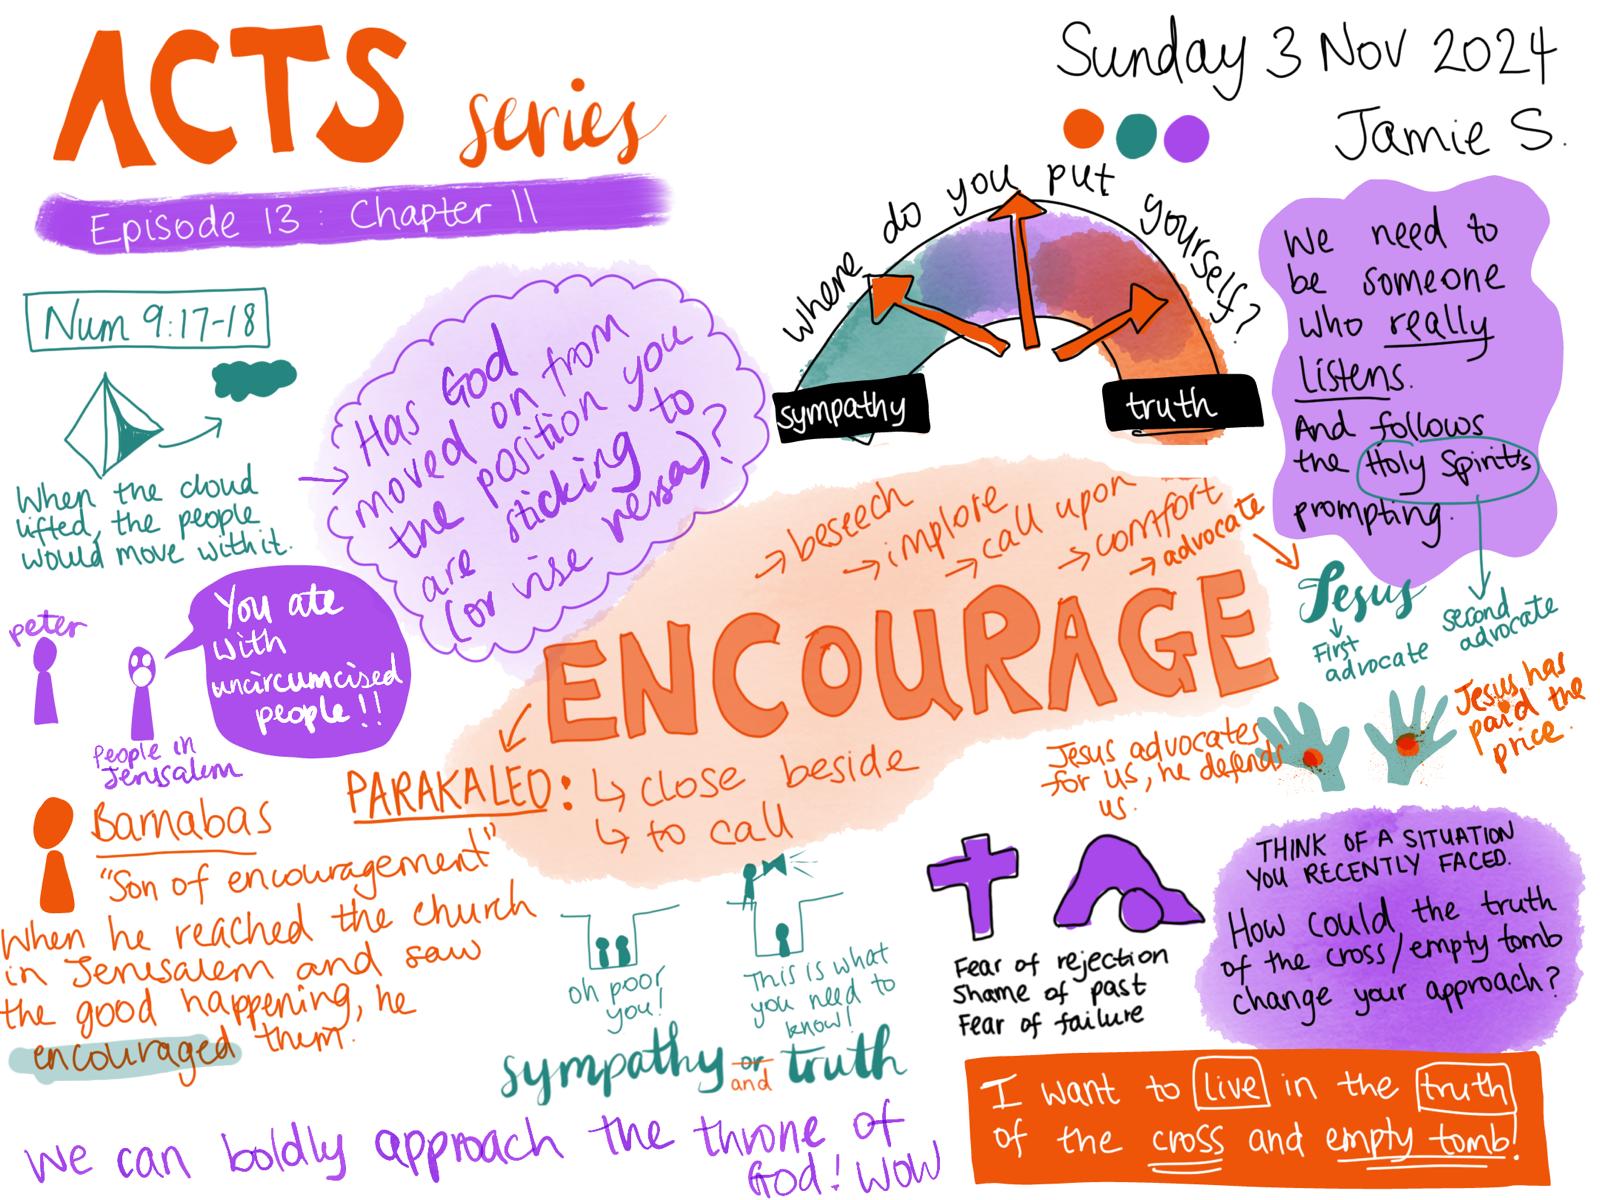 ACTS series
Episode 13 : Chapter 11
Sunday 3 Nov 2024
Jamie S.
Num 9:17-18
When the cloud
lifted, the people
would move with it.
Has God
moved on from
the position you
are sticking to
(or vise versa)?
where do you put yourself?
sympathy
truth
We need to
be someone
who really
listens.
And follows
the Holy Spirits
prompting.
Jesus
First
advocate
second
advocate
peter
You ate
with
uncircumcised
people!!
People in
Jerusalem
→ beseech
→ implore
→ call upon
→ comfort
→ advocate
ENCOURAGE
PARAKALEO:
↳ close beside
↳ to call
Jesus advocates
for us, he defends
us.
Jesus has
paid the
price.
Barnabas
"Son of encouragement"
When he reached the church
in Jerusalem and saw
the good happening, he
encouraged them.
oh poor
you!
This is what
you need to
know!
sympathy or truth
and
Fear of rejection
Shame of past
Fear of failure
THINK OF A SITUATION
YOU RECENTLY FACED.
How could the truth
of the cross/empty tomb
change your approach?
I want to live in the truth
of the cross and empty tomb!
We can boldly approach the throne of
God! WOW